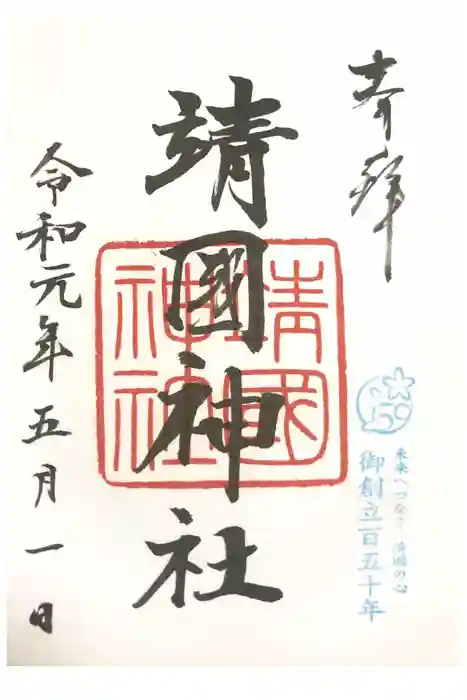 奉拝
150
未来へつなぐ 靖國の心
御創立百五十年
靖國神社
靖國神社
令和元年五月一日